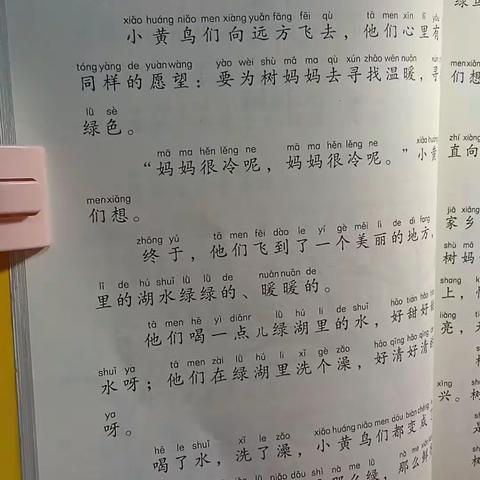 xiǎo huáng niǎo men xiàng yuǎn fāng fēi qù tā men xīn lǐ
小黄鸟们向远方飞去，他们心里有
tóng yàng de yuàn wàng yào wèi shù mā ma qù xún zhǎo wēn nuǎn
同样的愿望：要为树妈妈去寻找温暖，寻
lǜ sè
绿色。
mā ma hěn lěng ne mā ma hěn lěng ne xiǎo huáng
“妈妈很冷呢，妈妈很冷呢。”小黄
men xiǎng
们想。
zhōng yú tā men fēi dào le yí gè měi lì de dì fang
终于，他们飞到了一个美丽的地方，
lǐ de hú shuǐ lǜ lǜ de nuǎn nuǎn de
里的湖水绿绿的、暖暖的。
tā men hē yì diǎnr lǜ hú li de shuǐ hǎo tián hǎo
他们喝一点儿绿湖里的水，好甜好
shuǐ ya tā men zài lǜ hú li xǐ gè zǎo hǎo qīng hǎo qīng
水呀；他们在绿湖里洗个澡，好清好清
ya
呀。
hē le shuǐ xǐ le zǎo xiǎo huáng niǎo men dōu biàn chéng
喝了水，洗了澡，小黄鸟们都变成
nà me lǜ
那么绿，那么鲜
们想
直向
家乡
树妈
上，
亮，
兴。